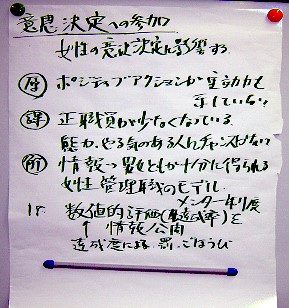 意思決定への参加
女性の意思決定に影響する
ポジティブアクションが
していない
課 正職員が少なくなっている
能力、やる気のある人にチャンスがない
情報 男女ともが十分に得られる
女性管理職のモデル
メンター制度
数値的評価(達成率)を
↑ 情報公開
達成度に 罰・ごほうび